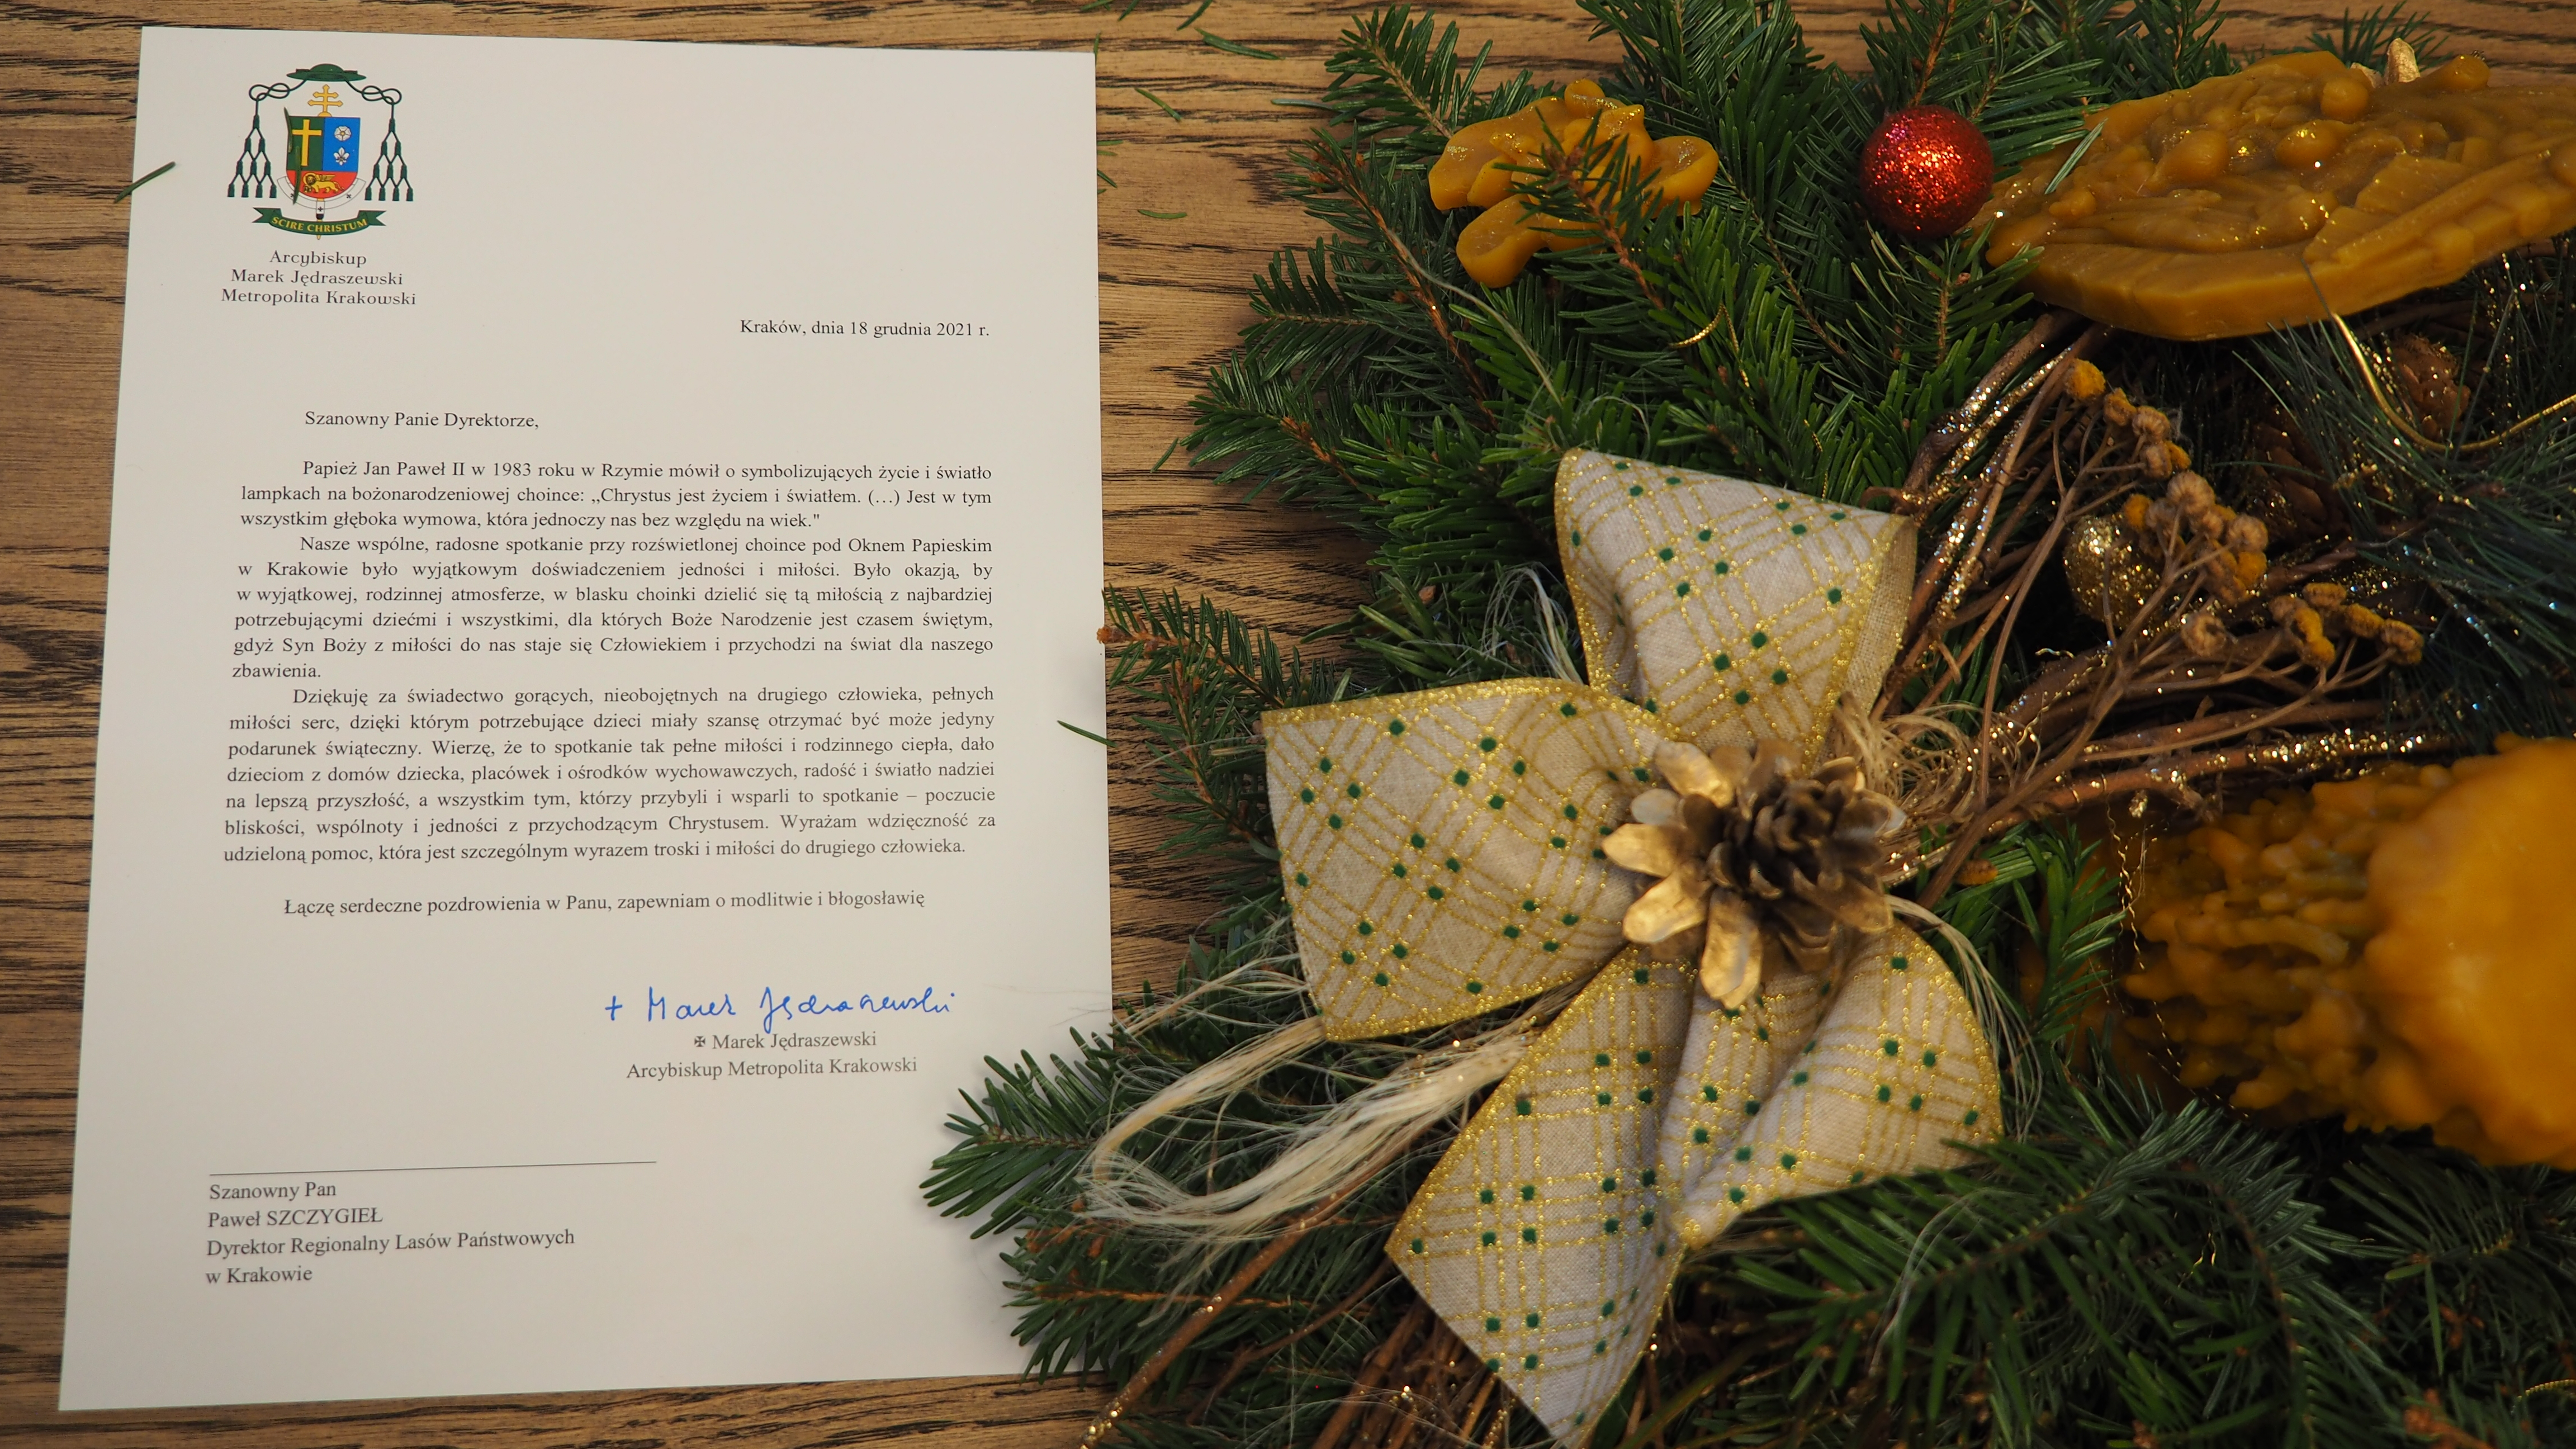 SCIRE CHRISTUM
Arcybiskup
Marek Jędraszewski
Metropolita Krakowski
Kraków, dnia 18 grudnia 2021 r.
Szanowny Panie Dyrektorze,
Papież Jan Paweł II w 1983 roku w Rzymie mówił o symbolizujących życie i światło
lampkach na bożonarodzeniowej choince: „Chrystus jest życiem i światłem. (…) Jest w tym
wszystkim głęboka wymowa, która jednoczy nas bez względu na wiek."
Nasze wspólne, radosne spotkanie przy rozświetlonej choince pod Oknem Papieskim
w Krakowie było wyjątkowym doświadczeniem jedności i miłości. Było okazją, by
w wyjątkowej, rodzinnej atmosferze, w blasku choinki dzielić się tą miłością z najbardziej
potrzebującymi dziećmi i wszystkimi, dla których Boże Narodzenie jest czasem świętym,
gdyż Syn Boży z miłości do nas staje się Człowiekiem i przychodzi na świat dla naszego
zbawienia.
Dziękuję za świadectwo gorących, nieobojętnych na drugiego człowieka, pełnych
miłości serc, dzięki którym potrzebujące dzieci miały szansę otrzymać być może jedyny
podarunek świąteczny. Wierzę, że to spotkanie tak pełne miłości i rodzinnego ciepła, dało
dzieciom z domów dziecka, placówek i ośrodków wychowawczych, radość i światło nadziei
na lepszą przyszłość, a wszystkim tym, którzy przybyli i wsparli to spotkanie – poczucie
bliskości, wspólnoty i jedności z przychodzącym Chrystusem. Wyrażam wdzięczność za
udzieloną pomoc, która jest szczególnym wyrazem troski i miłości do drugiego człowieka.
Łączę serdeczne pozdrowienia w Panu, zapewniam o modlitwie i błogosławię
+ Marek Jędraszewski
✠ Marek Jędraszewski
Arcybiskup Metropolita Krakowski
Szanowny Pan
Paweł SZCZYGIEŁ
Dyrektor Regionalny Lasów Państwowych
w Krakowie